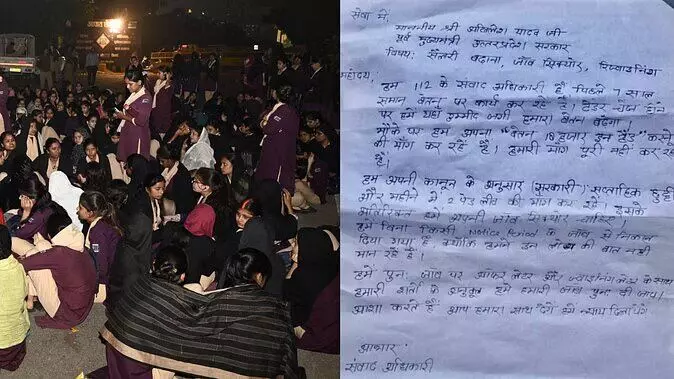 सेवा में,
माननीय श्री अखिलेश यादव जी
पूर्व मुख्यमंत्री उत्तरप्रदेश सरकार
विषय: सैलरी बढ़ाना, जॉब सिक्योर,
महोदय,
हम 112 के संवाद अधिकारी हैं, पिछले 7 साल
समान वेतन पर कार्य कर रहे हैं। टेंडर चेंज होने
पर हमें यही उम्मीद लगी हमारा वेतन बढ़ेगा।
मौके पर हम अपना "वेतन 18 हजार इन हैंड" करने
की मांग कर रहे हैं। हमारी मांग पूरी नहीं कर रहे
हैं।
हम अपनी कानून के अनुसार (सरकारी) सप्ताहिक छुट्टी
और महीने में 2 पेड लीव की मांग कर रहे। इसके
अतिरिक्त हमें अपनी जॉब सिक्योर चाहिए
हमें बिना किसी Notice Period के जॉब से निकाल
दिया गया है क्योंकि हमने इन लोगों की बात नहीं
मान रहे हैं।
हमें पुनः जॉब पर ऑफर लेटर और के साथ
हमारी शर्तों के अनुकूल हमें हमारी जॉब पुनः दी जाए।
आशा करते हैं आप हमारा साथ देंगे हमें न्याय दिलाएंगे
आभार
संवाद अधिकारी